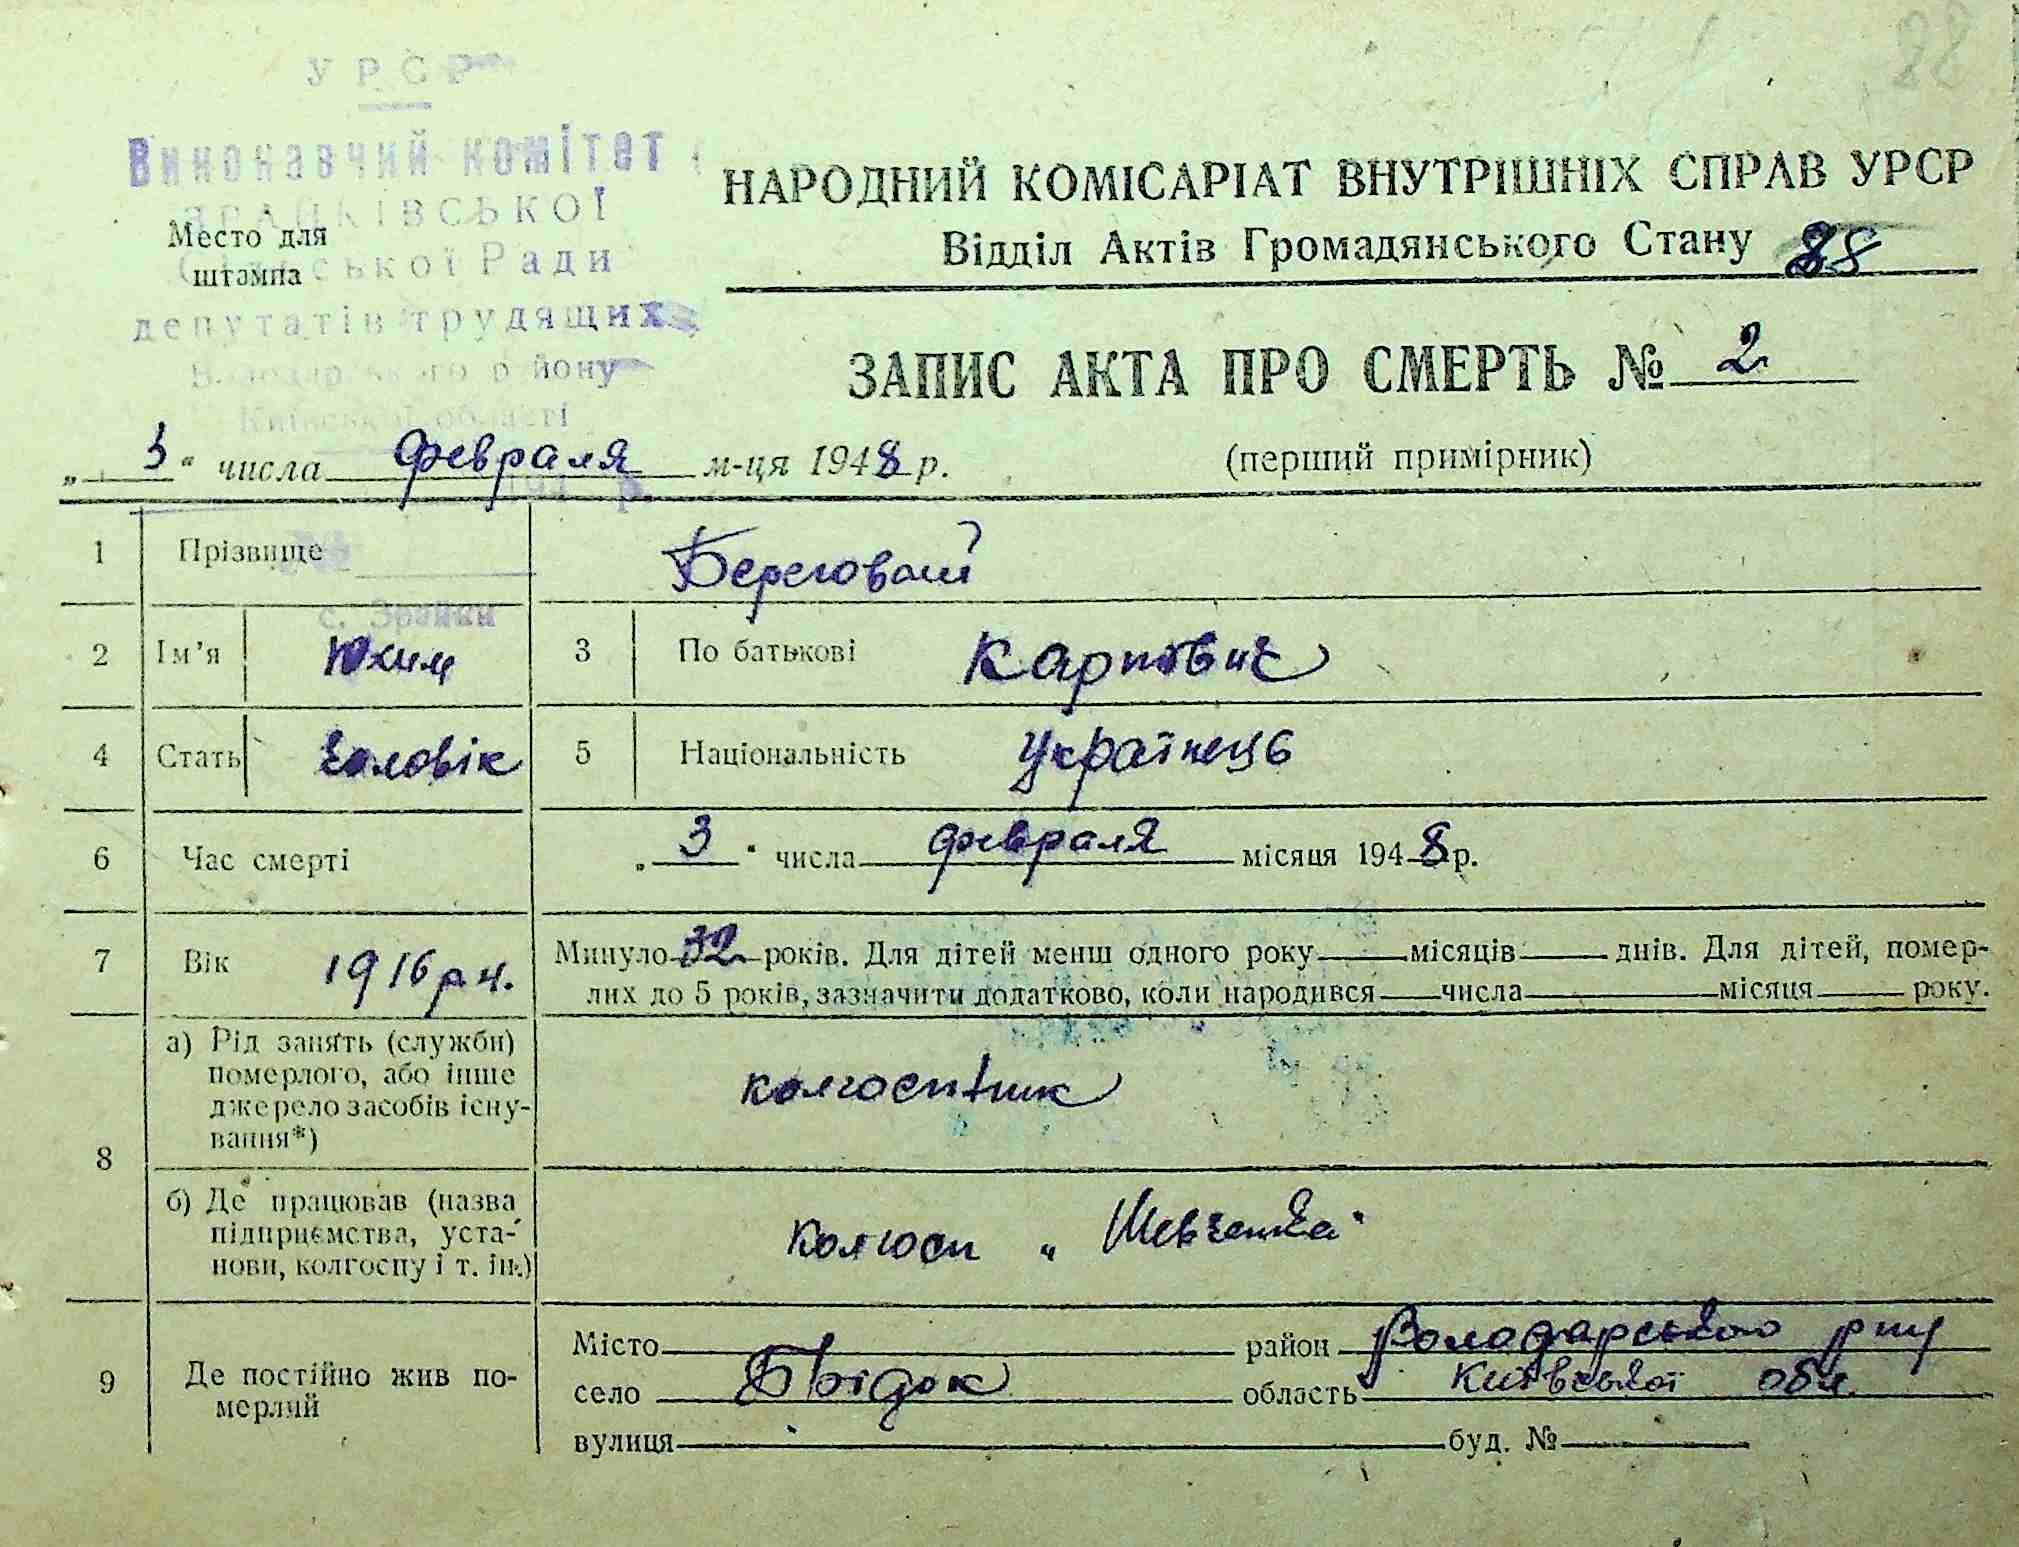 88
УРСР
Виконавчий комітет
ЗРАЙКІВСЬКОЇ
Сільської Ради
депутатів трудящих
Володарського району
Київської області
194 р.
№
с. Зрайки
Место для
штампа
НАРОДНИЙ КОМІСАРІАТ ВНУТРІШНІХ СПРАВ УРСР
Відділ Актів Громадянського Стану 88
ЗАПИС АКТА ПРО СМЕРТЬ № 2
„3“ числа февраля м-ця 1948 р.
(перший примірник)
1 Прізвище Береговий
2 Ім'я Юхим 3 По батькові Карпович
4 Стать Чоловік 5 Національність Українець
6 Час смерті „3“ числа февраля місяця 1948 р.
7 Вік 1916 р н. Минуло 32 років. Для дітей менш одного року місяців днів. Для дітей, помер-
лих до 5 років, зазначити додатково, коли народився числа місяця року.
8
а) Рід занять (служби)
померлого, або інше
джерело засобів існу-
вання*)
колгоспник
б) Де працював (назва
підприємства, уста-
нови, колгоспу і т. ін.)
колгосп „Шевченка“
9 Де постійно жив по-
мерлий
Місто район Володарського р-ну
село область Київської обл.
вулиця буд. №